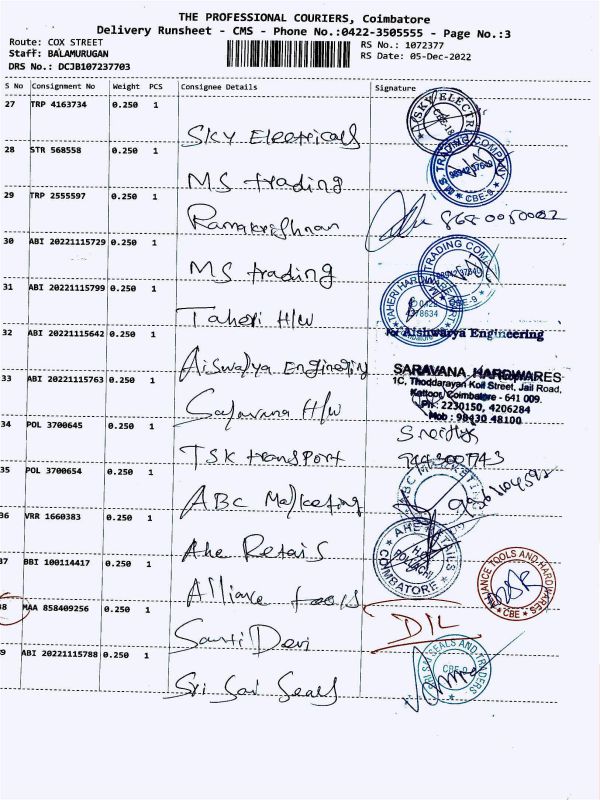 THE PROFESSIONAL COURIERS, Coimbatore
Delivery Runsheet - CMS - Phone No.:0422-3505555 - Page No.:3
Route: COX STREET
Staff: BALAMURUGAN
DRS No.: DCJB107237703
RS No.: 1072377
RS Date: 05-Dec-2022
S No Consignment No Weight PCS Consignee Details Signature
27 TRP 4163734 0.250 1
SKY Electricals
28 STR 568558 0.250 1
MS trading
M.S. TRADING COMPANY
CBE-9
29 TRP 2555597 0.250 1
Ramakrishnan
30 ABI 20221115729 0.250 1
MS trading
TRADING COM
CBE-9
31 ABI 20221115799 0.250 1
Taheri H/W
TAHERI HARDWARE
32 ABI 20221115642 0.250 1
For Aishwarya Engineering
Aiswarya Engineering
33 ABI 20221115763 0.250 1
SARAVANA HARDWARES
1C, Thoddarayan Koil Street, Jail Road,
Kattoor, Coimbatore - 641 009.
Ph : 2230150, 4206284
Mob : 98430 48100
Saravana H/W
34 POL 3700645 0.250 1
TSK transport
35 POL 3700654 0.250 1
ABC Marketing
ABC MARKETING
36 VRR 1660383 0.250 1
Ahe Retais
AHE RETAILS
H.O.
POLLACHI
COIMBATORE
37 BBI 100114417 0.250 1
Alliance tools
ALLIANCE TOOLS AND HARDWARES
CBE
38 MAA 858409256 0.250 1
Santi Devi
D/L
39 ABI 20221115788 0.250 1
Sri Sai Seals
SRI SAI SEALS AND TRADERS
CBE-9